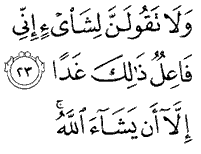 وَلَا نَقُولَنَّ لِشَا۟ىۡءٍ إِنِّي
فَاعِلٌ ذَٰلِكَ غَدًا ٢٣
إِلَّآ أَن يَشَآءَ ٱللَّهُ ۚ